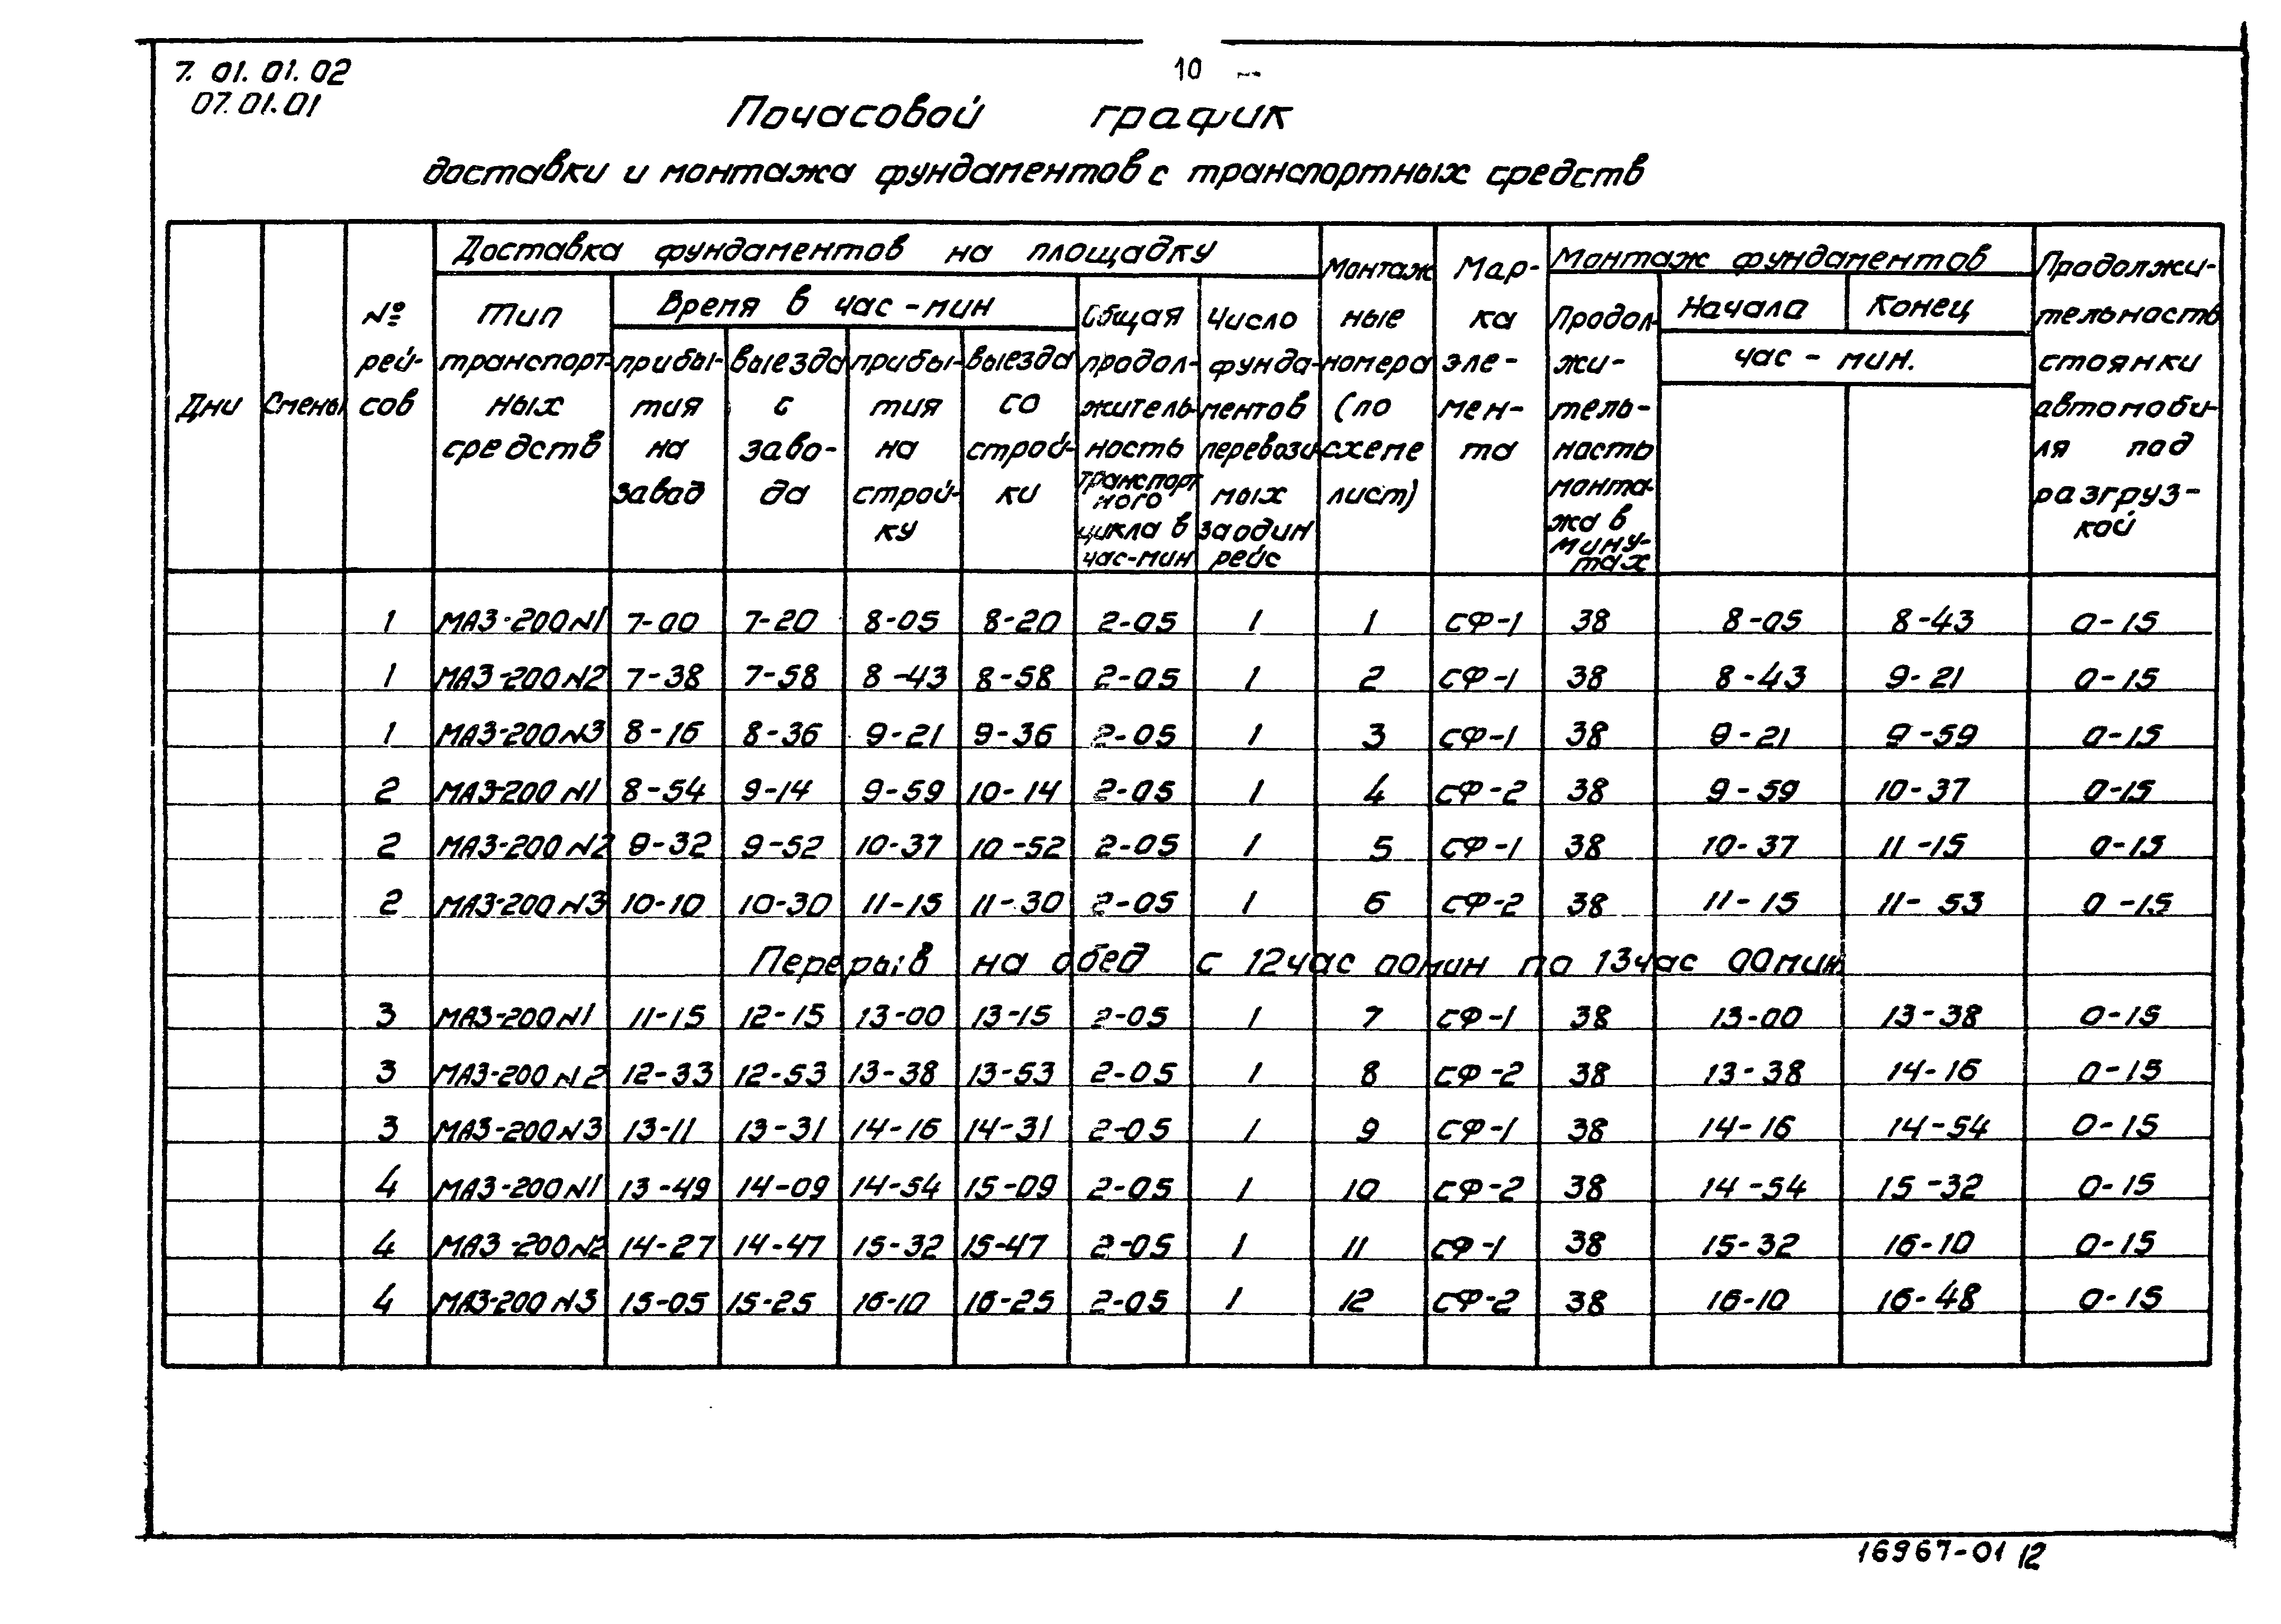 7. 01. 01. 02
07. 01. 01
10
Почасовой график
доставки и монтажа фундаментов с транспортных средств
Дни
Смены
№ рей-
сов
Доставка фундаментов на площадку
Тип
транспорт-
ных
средств
Время в час-мин
прибы-
тия
на
завод
выезда
с
заво-
да
прибы-
тия
на
строй-
ку
выезда
со
строй-
ки
Общая
продол-
житель-
ность
транспорт
ного
цикла в
час-мин
Число
фунда-
ментов
перевози
мых
за один
рейс
Монтаж
ные
номера
(по
схеме
лист)
Мар-
ка
эле-
мен-
та
Монтаж фундаментов
Продол-
жи-
тель-
ность
монта-
жа в
мину-
тах
Начала
Конец
час - мин.
Продолжи-
тельность
стоянки
автомоби-
ля под
разгруз-
кой
1 МАЗ-200 N1 7-00 7-20 8-05 8-20 2-05 1 1 СФ-1 38 8-05 8-43 0-15
1 МАЗ-200 N2 7-38 7-58 8-43 8-58 2-05 1 2 СФ-1 38 8-43 9-21 0-15
1 МАЗ-200 N3 8-16 8-36 9-21 9-36 2-05 1 3 СФ-1 38 9-21 9-59 0-15
2 МАЗ-200 N1 8-54 9-14 9-59 10-14 2-05 1 4 СФ-2 38 9-59 10-37 0-15
2 МАЗ-200 N2 9-32 9-52 10-37 10-52 2-05 1 5 СФ-1 38 10-37 11-15 0-15
2 МАЗ-200 N3 10-10 10-30 11-15 11-30 2-05 1 6 СФ-2 38 11-15 11-53 0-15
Перерыв на обед с 12 час 00 мин по 13 час 00 мин.
3 МАЗ-200 N1 11-15 12-15 13-00 13-15 2-05 1 7 СФ-1 38 13-00 13-38 0-15
3 МАЗ-200 N2 12-33 12-53 13-38 13-53 2-05 1 8 СФ-2 38 13-38 14-16 0-15
3 МАЗ-200 N3 13-11 13-31 14-16 14-31 2-05 1 9 СФ-1 38 14-16 14-54 0-15
4 МАЗ-200 N1 13-49 14-09 14-54 15-09 2-05 1 10 СФ-2 38 14-54 15-32 0-15
4 МАЗ-200 N2 14-27 14-47 15-32 15-47 2-05 1 11 СФ-1 38 15-32 16-10 0-15
4 МАЗ-200 N3 15-05 15-25 16-10 16-25 2-05 1 12 СФ-2 38 16-10 16-48 0-15
16967-01 12